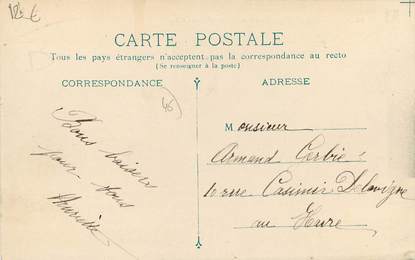 12 €
CARTE POSTALE
Tous les pays étrangers n'acceptent pas la correspondance au recto
(Se renseigner à la poste)
CORRESPONDANCE
ADRESSE
46
Bons baisers
pour tous
Henriette
Monsieur
Armand Corbie
10 rue Casimir Delavigne
au Havre